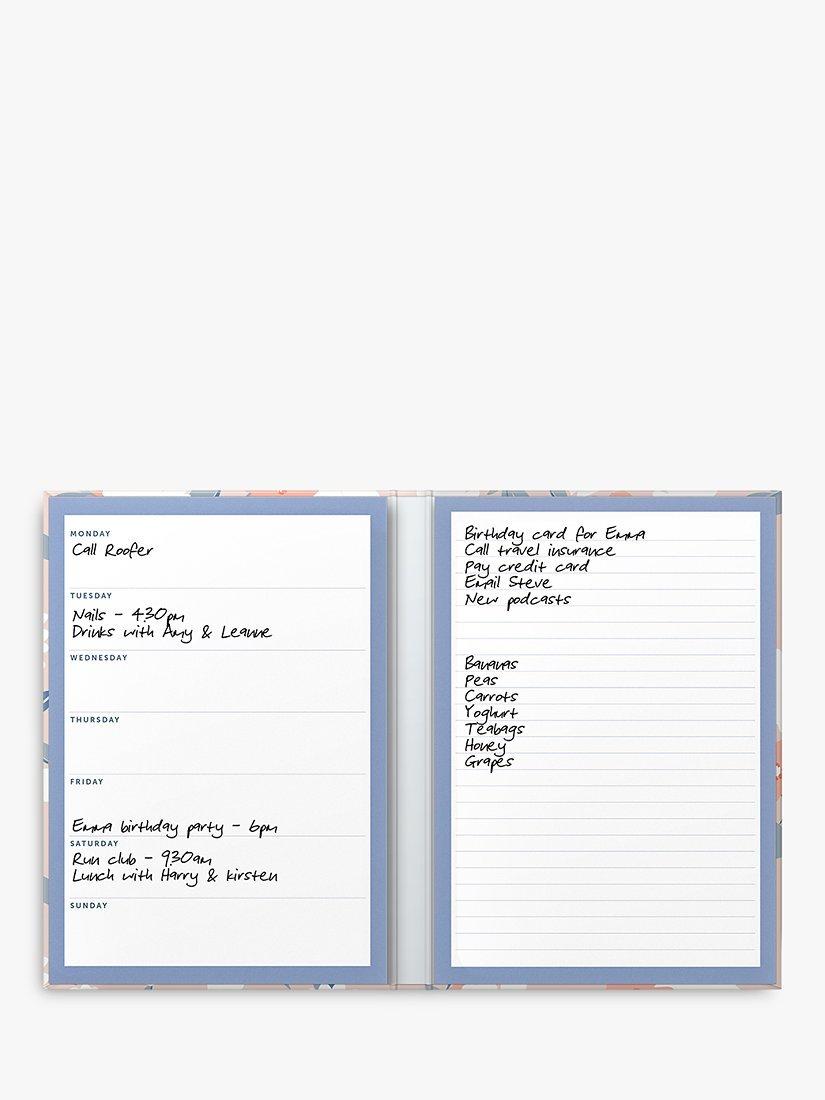 MONDAY
Call Roofer
TUESDAY
Nails - 4.30pm
Drinks with Amy & Leanne
WEDNESDAY
THURSDAY
FRIDAY
Emma birthday party - 6pm
SATURDAY
Run club - 9.30am
Lunch with Harry & Kirsten
SUNDAY
Birthday card for Emma
Call travel insurance
Pay credit card
Email Steve
New podcasts
Bananas
Peas
Carrots
Yoghurt
Teabags
Honey
Grapes